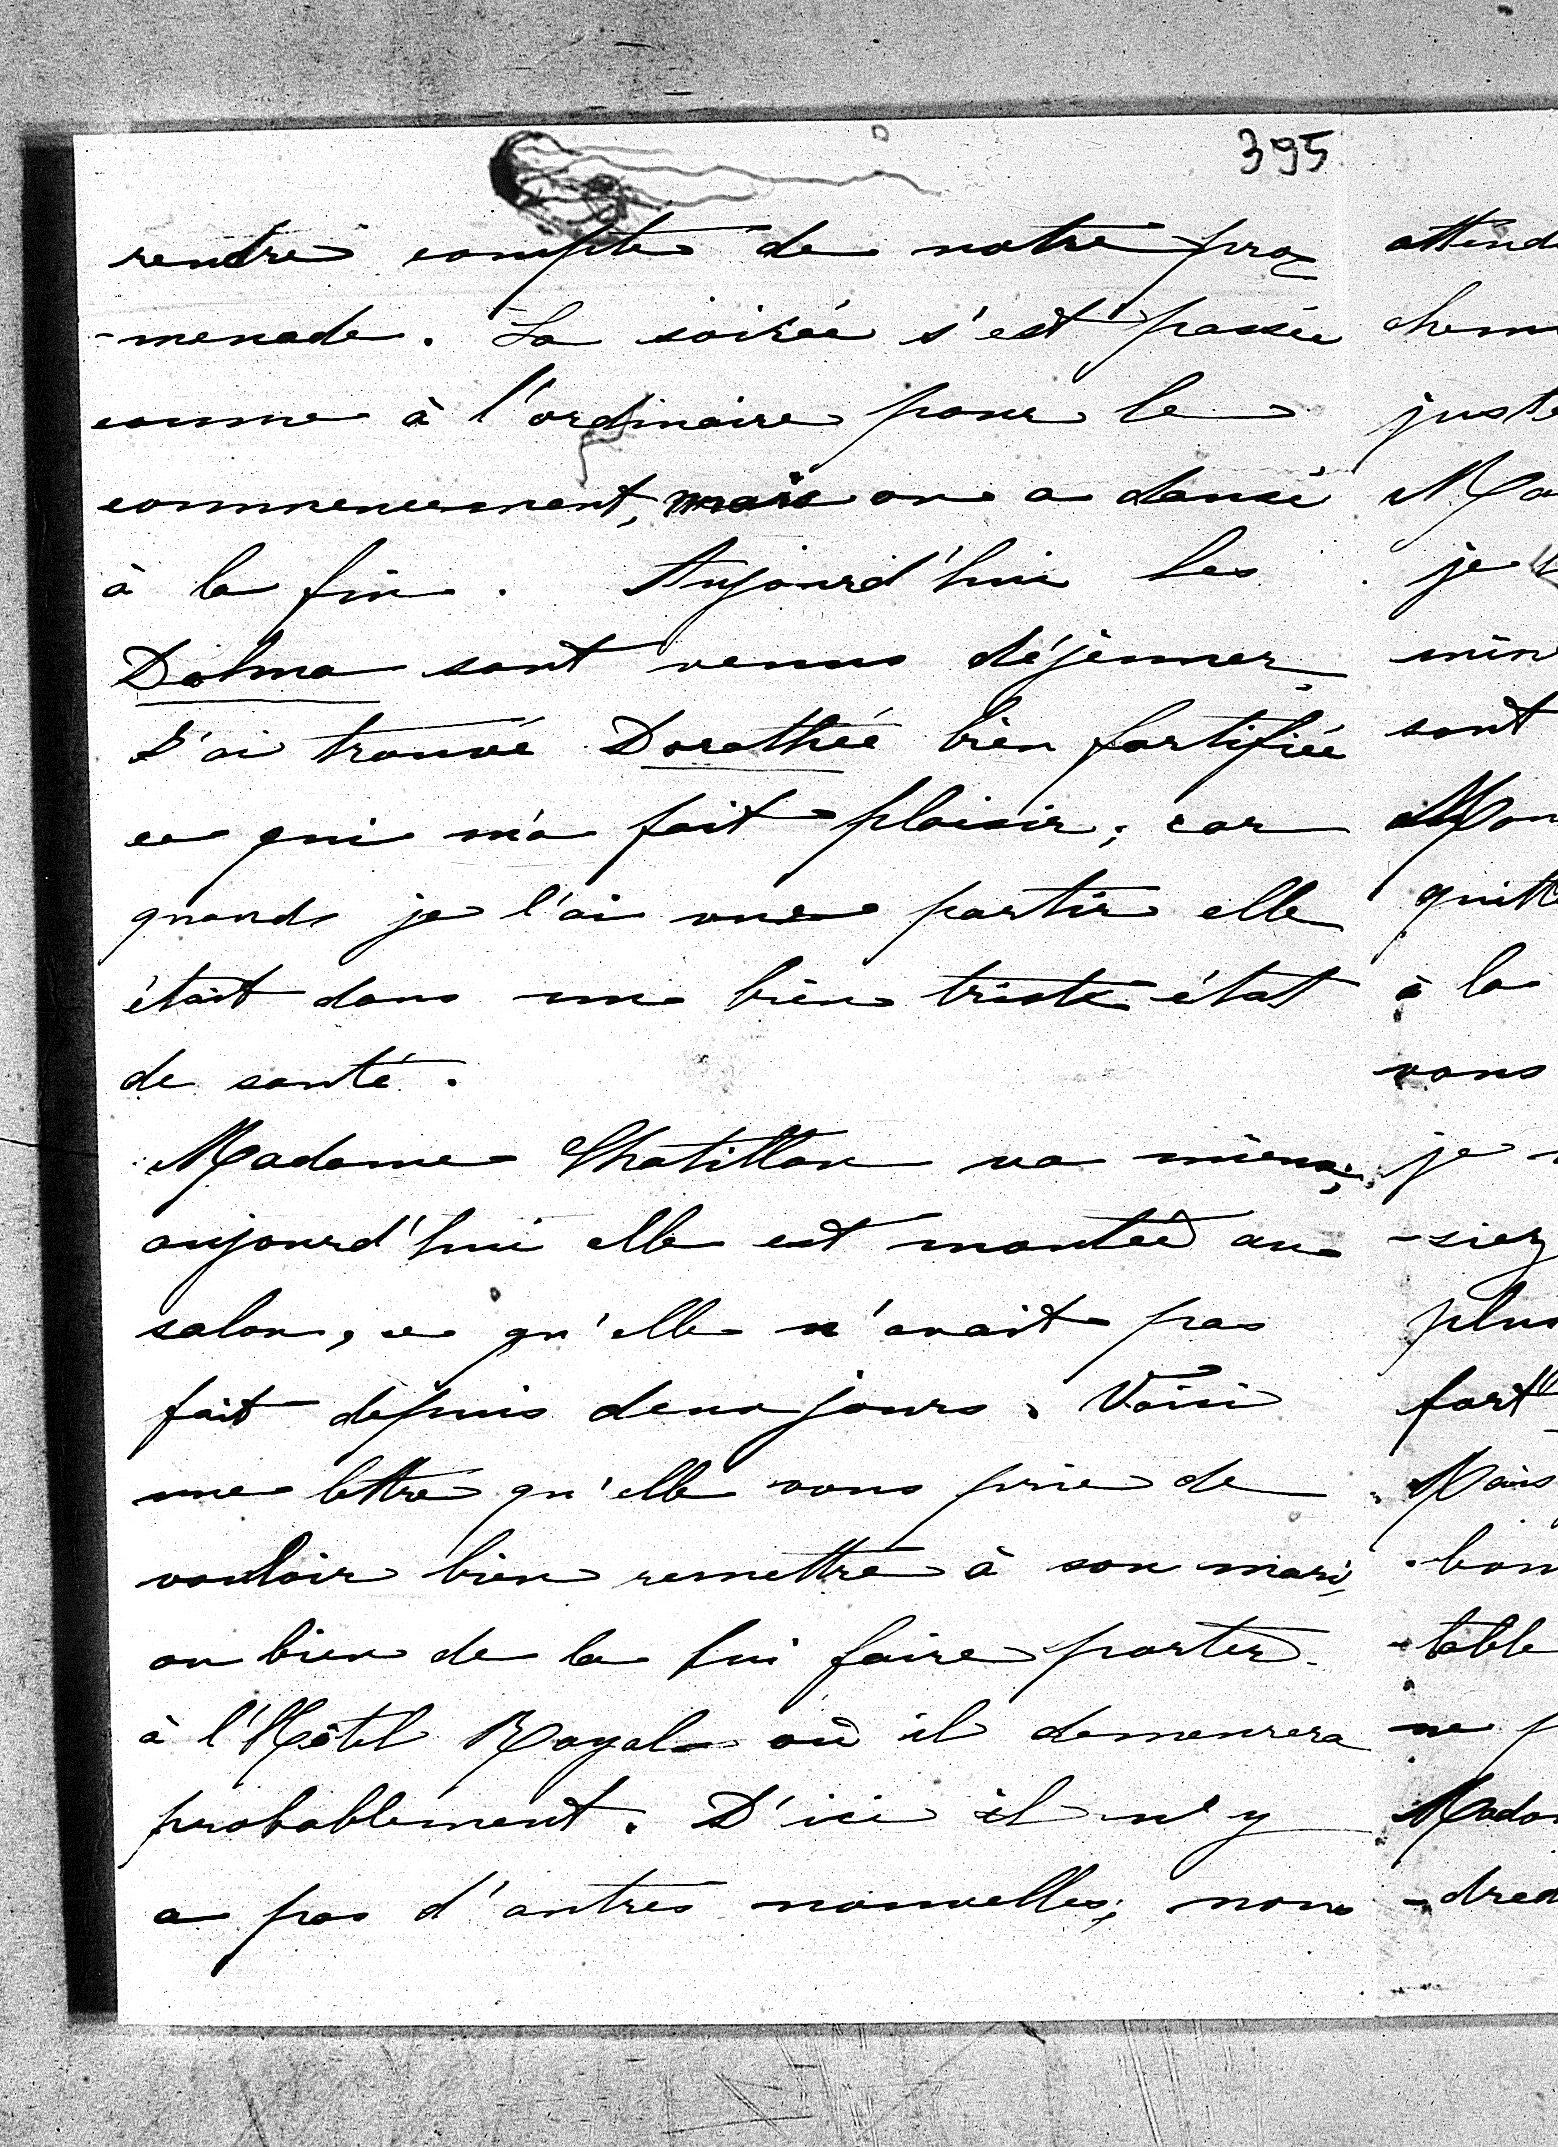 395
rendre compte de notre pro
-menade. La soirée s'est passée
comme à l'ordinaire pour le
commencement, mais on a dansé
à la fin. Aujourd'hui les
Dolma sont venus déjeuner.
J'ai trouvé Dorothée bien fortifiée
ce qui m'a fait plaisir; car
quand je l'ai vue partir elle
était dans un bien triste état
de santé.
Madame Chatillon va mieux;
aujourd'hui elle est montée au
salon, ce qu'elle n'avait pas
fait depuis deux jours. Voici
une lettre qu'elle vous prie de
vouloir bien remettre à son mari,
ou bien de la lui faire porter
à l'Hôtel Royal où il demeurera
probablement. D'ici il n'y
a pas d'autres nouvelles; nous
attend
chem
juste
Ma
je
min
sont
Mon
quitt
à la
vous
je
-siez
plus
fort
Mais
bon
table
ne p
Mada
-dred